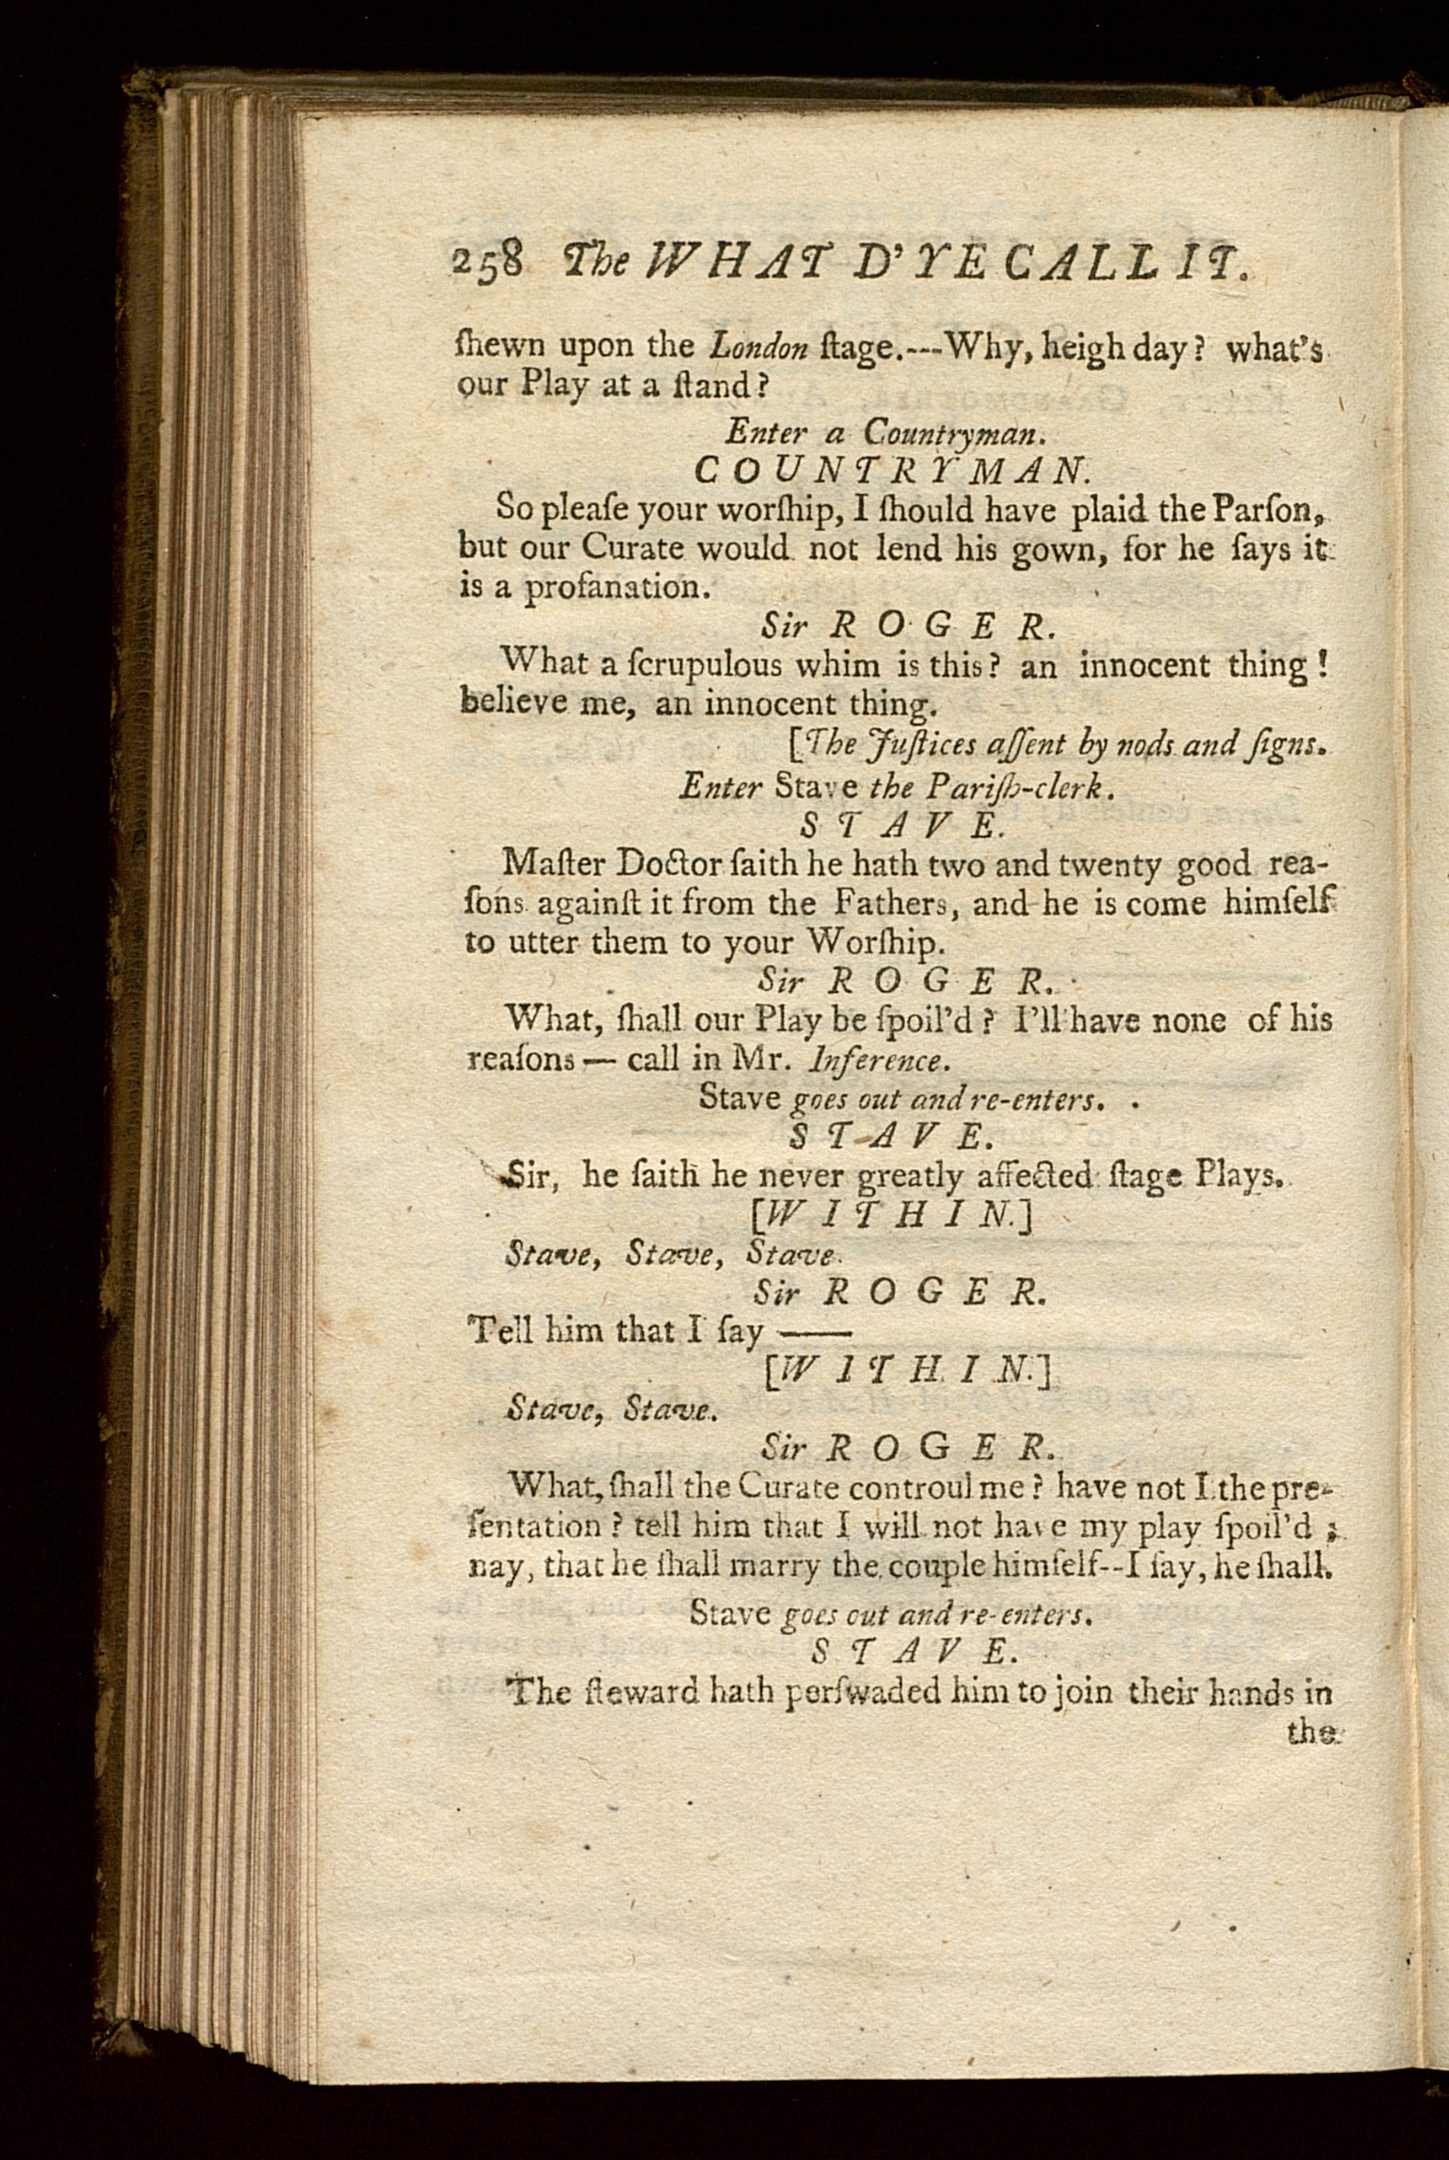 258 The WHAT D'YE CALL IT.
ſhewn upon the London ſtage.---Why, heigh day? what's
our Play at a ſtand?
Enter a Countryman.
COUNTRYMAN.
So pleaſe your worſhip, I ſhould have plaid the Parſon,
but our Curate would not lend his gown, for he ſays it
is a profanation.
Sir ROGER.
What a ſcrupulous whim is this? an innocent thing!
believe me, an innocent thing.
[The Juſtices aſſent by nods and ſigns.
Enter Stave the Pariſh-clerk.
STAVE.
Maſter Doctor ſaith he hath two and twenty good rea-
ſons againſt it from the Fathers, and he is come himſelf
to utter them to your Worſhip.
Sir ROGER.
What, ſhall our Play be ſpoil'd? I'll have none of his
reaſons — call in Mr. Inference.
Stave goes out and re-enters.
STAVE.
Sir, he ſaith he never greatly affected ſtage Plays.
[WITHIN.]
Stave, Stave, Stave.
Sir ROGER.
Tell him that I ſay ——
[WITHIN.]
Stave, Stave.
Sir ROGER.
What, ſhall the Curate controul me? have not I the pre-
ſentation? tell him that I will not have my play ſpoil'd;
nay, that he ſhall marry the couple himſelf--I ſay, he ſhall.
Stave goes out and re-enters.
STAVE.
The ſteward hath perſwaded him to join their hands in
the